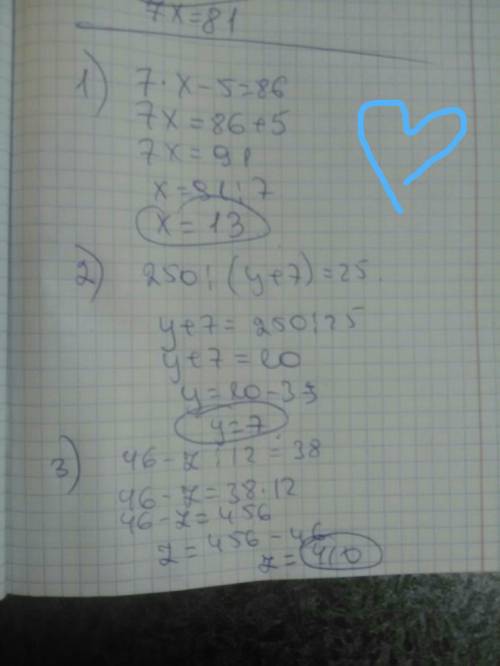 7x=81
1) 7·x-5=86
7x=86+5
7x=91
x=91:7
x=13
2) 250:(y+7)=25.
y+7=250:25
y+7=10
y=10-
y=7
3) 46-z:12=38
46-z=38·12
46-z=456
z=456-46
z=410